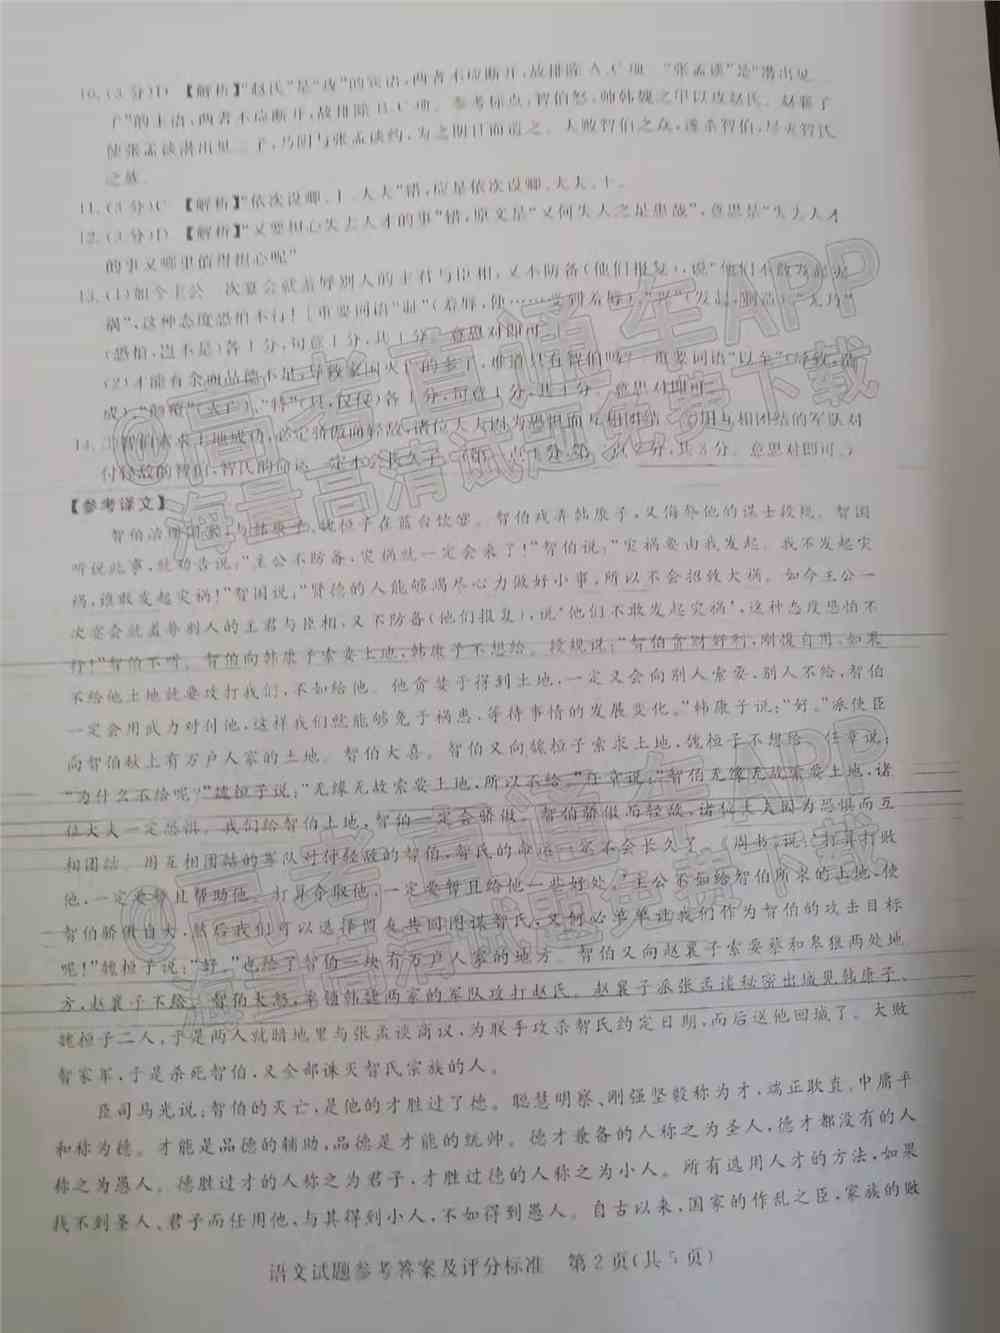 10.(3分)D 【解析】“赵氏”是“攻”的宾语,两者不应断开,故排除A、C项。“张孟谈”是“潜出见二
子”的主语,两者不应断开,故排除B、C项。参考标点:智伯怒,帅韩魏之甲以攻赵氏。赵襄子
使张孟谈潜出见二子,乃阴与张孟谈约,为之期日而遣之。大败智伯之众,遂杀智伯,尽灭智氏
之族。
11.(3分)C 【解析】“依次设卿、士、大夫”错,应是依次设卿、大夫、士。
12.(3分)D 【解析】“又要担心失去人才的事”错,原文是“又何失人之足患哉”,意思是“失去人才
的事又哪里值得担心呢”
13.(1)如今主公一次宴会就羞辱别人的主君与臣相,又不防备(他们报复),说“他们不敢发起灾
祸”,这种态度恐怕不行!
(恐怕,岂不是)各1分,句意1分,共4分。意思对即可。]
(2)才能有余而品德不足,导致家国灭亡的多了,难道只有智伯吗?
各1分,句意1分,共4分。意思对即可
14.①智伯索求土地成功,必定骄傲而轻敌,诸位大夫因为恐惧而互相团结。②用互相团结的军队对
付轻敌的智伯,智氏的命运一定不会长久了。
共3分。意思对即可。)
【参考译文】
智伯戏弄韩康子,又侮辱他的谋士段规。智国
听说此事,就劝告说:“主公不防备,灾祸就一定会来了!”智伯说:“灾祸要由我发起。我不发起灾
祸,谁敢发起灾祸!”智国说:“贤德的人能够竭尽心力做好小事,所以不会招致大祸。如今主公一
次宴会就羞辱别人的主君与臣相,又不防备(他们报复),说‘他们不敢发起灾祸’,这种态度恐怕不
行!”智伯不听。智伯向韩康子索要土地,韩康子不想给。段规说:“智伯贪财好利,刚愎自用,如果
不给他土地就要攻打我们,不如给他。他贪婪于得到土地,一定又会向别人索要,别人不给,智伯
一定会用武力对付他,这样我们就能够免于祸患,等待事情的发展变化。”韩康子说:“好。”派使臣
向智伯献上有万户人家的土地。智伯大喜。智伯又向魏桓子索求土地,魏桓子不想给。任章说:
“为什么不给呢?”魏桓子说:“无缘无故索要土地,所以不给。”任章说:“智伯无缘无故索要土地,诸
位大夫一定恐惧。我们给智伯土地,智伯一定会骄傲。智伯骄傲而轻敌,诸位大夫因为恐惧而互
相团结。用互相团结的军队对付轻敌的智伯,智氏的命运一定不会长久了。《周书》说:‘打算打败
他,一定要暂且帮助他。打算夺取他,一定要暂且给他一些好处。’主公不如给智伯所求的土地,使
智伯骄傲自大,然后我们可以选择盟友共同图谋智氏,又何必单单让我们作为智伯的攻击目标
呢!”魏桓子说:“好。”也给了智伯一块有万户人家的地方。智伯又向赵襄子索要蔡和皋狼两处地
方,赵襄子不给。智伯大怒,率领韩魏两家的军队攻打赵氏。赵襄子派张孟谈秘密出城见韩康子、
魏桓子二人,于是两人就暗地里与张孟谈商议,为联手攻杀智氏约定日期,而后送他回城了。大败
智家军,于是杀死智伯,又全部诛灭智氏宗族的人。
臣司马光说:智伯的灭亡,是他的才胜过了德。聪慧明察、刚强坚毅称为才,端正耿直、中庸平
和称为德。才能是品德的辅助,品德是才能的统帅。德才兼备的人称之为圣人,德才都没有的人
称之为愚人。德胜过才的人称之为君子,才胜过德的人称之为小人。所有选用人才的方法,如果
找不到圣人、君子而任用他,与其得到小人,不如得到愚人。自古以来,国家的作乱之臣,家族的败
语文试题参考答案及评分标准 第2页(共5页)
@高考直通车APP
海量高清试题免费下载
@高考直通车APP
海量高清试题免费下载